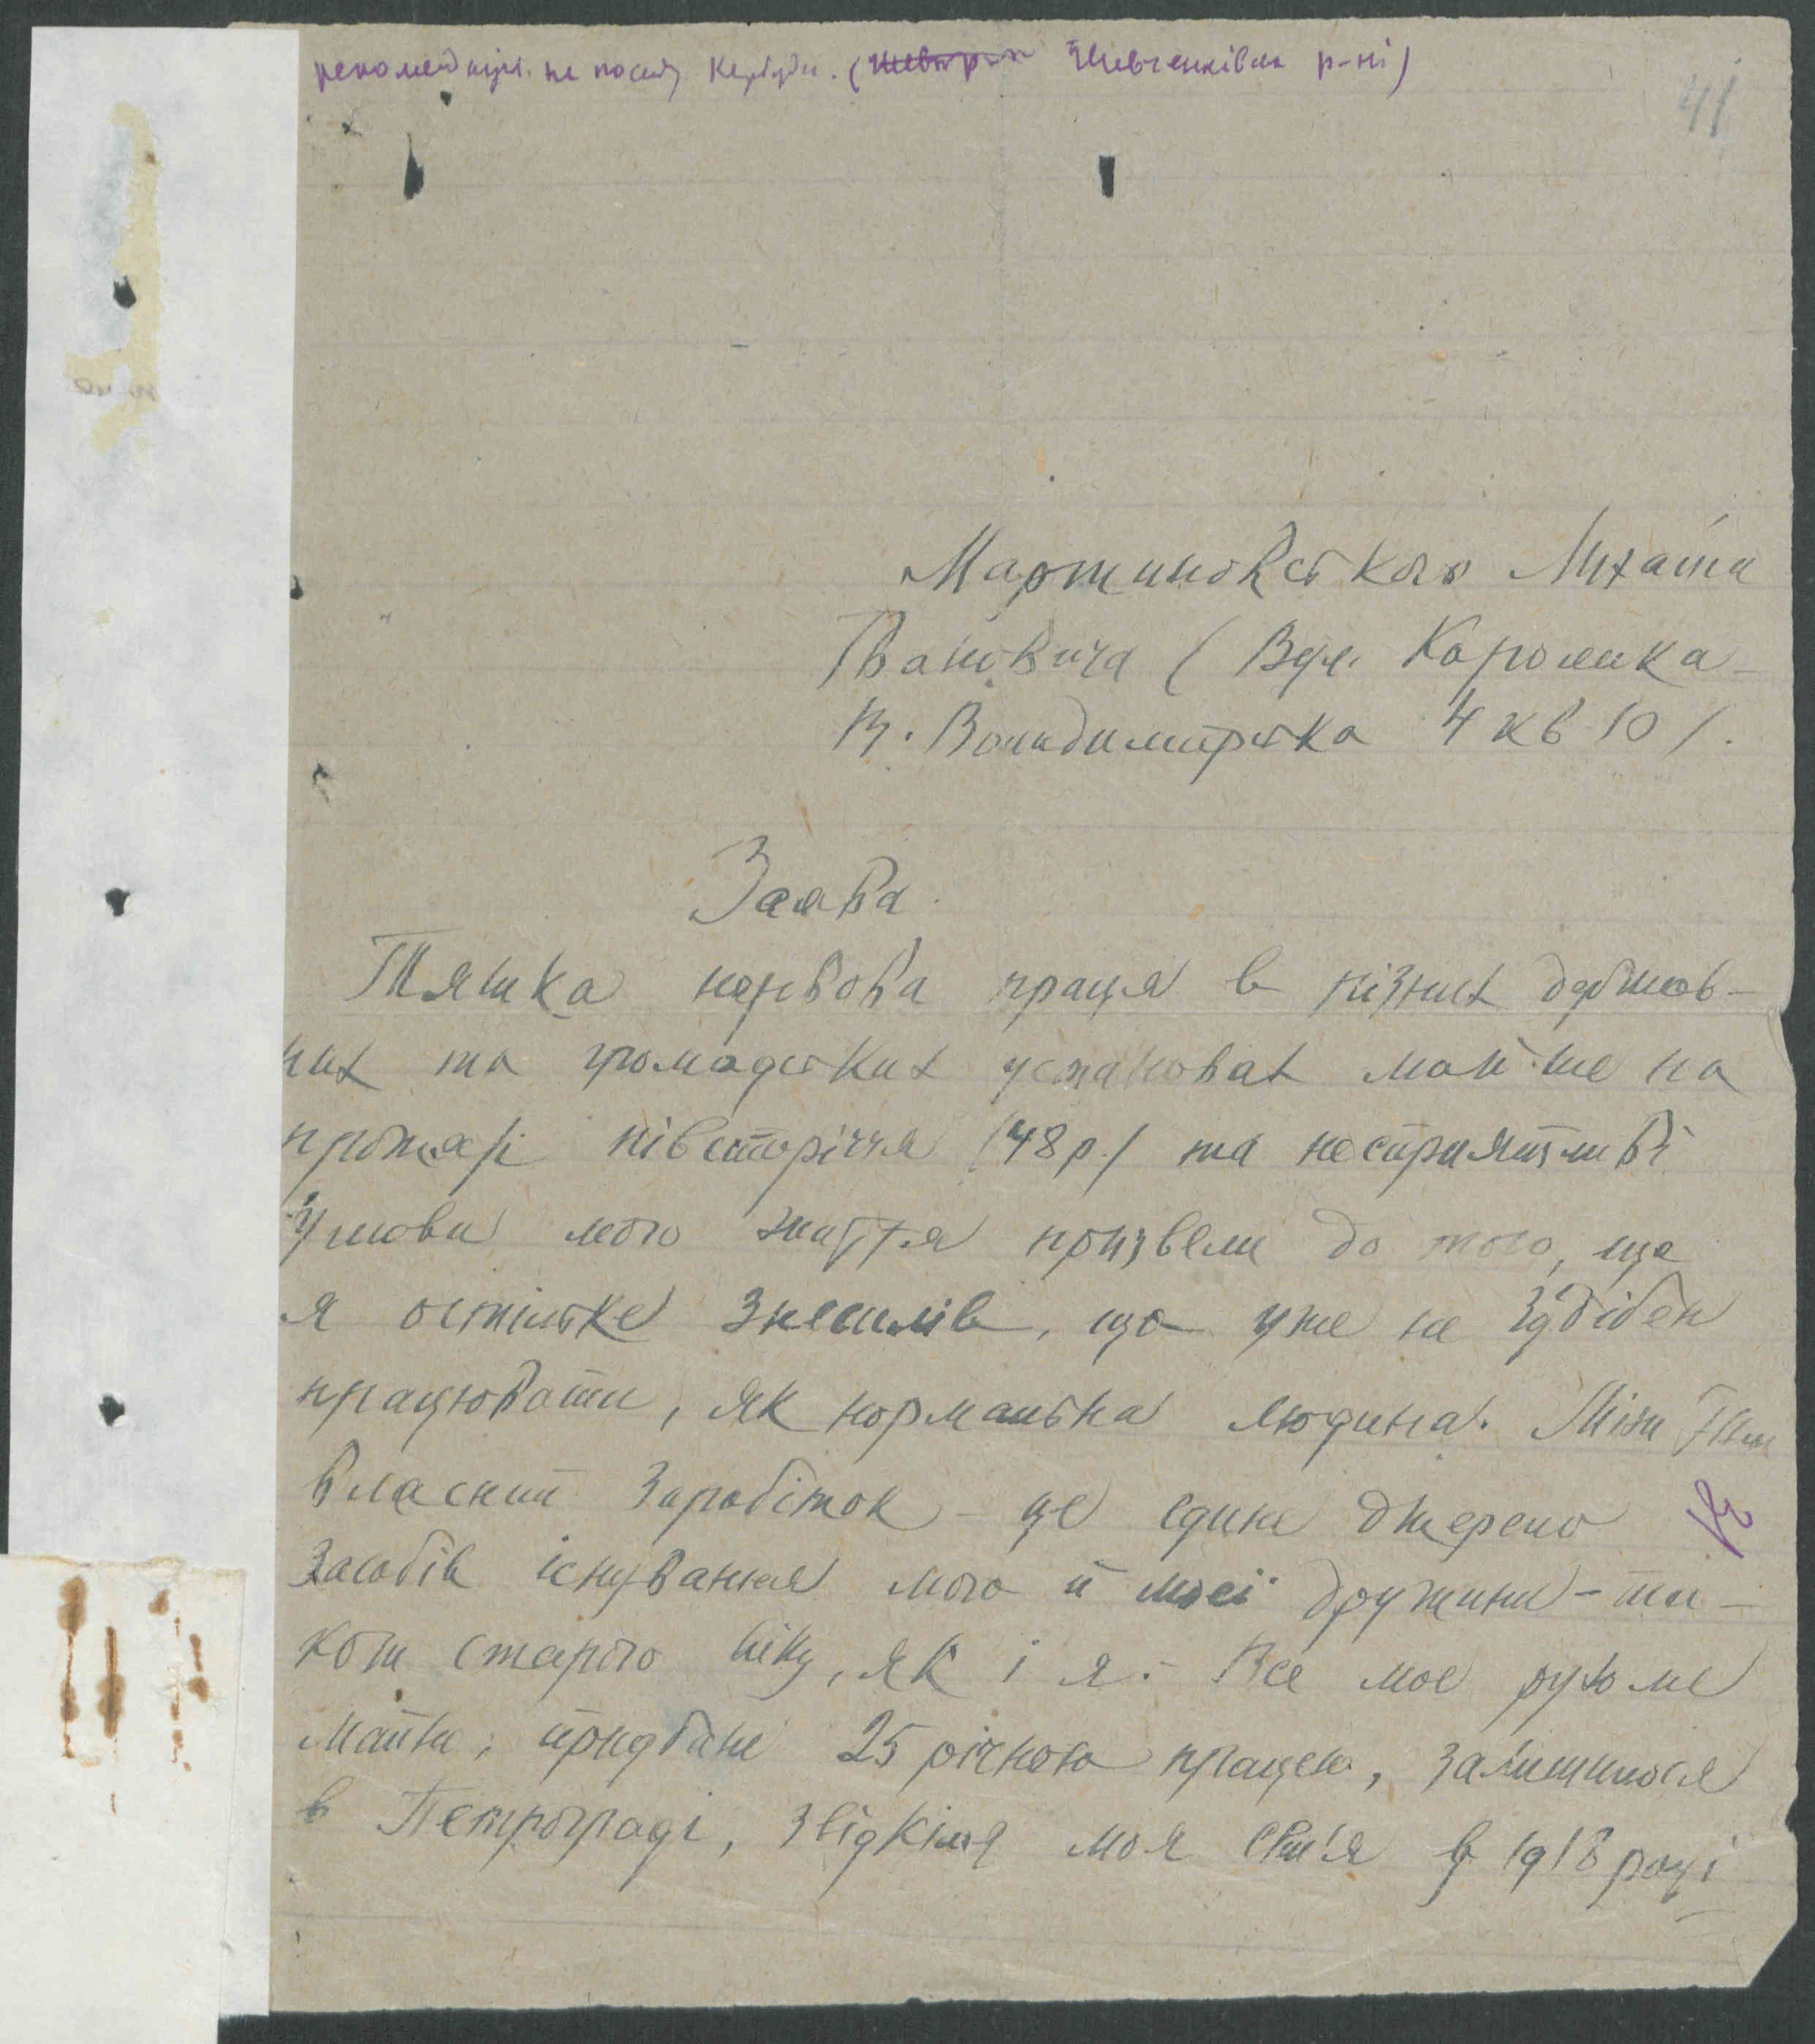 рекомендація на посаду Кербуди. (Шевченківськ р-ні)
41
Мартиновського Михайла
Івановича (Вул. Короленка
В. Володимирська 4 кв 10).
Заява.
Тяжка нервова праця в різних держав-
них та громадських установах майже на
протязі півсторіччя (48 р.) та несприятливі
умови мого життя призвели до того, що
я остільке знесилів, що уже не здібен
працювати, як нормальна людина. Між тим
власний заробіток – це єдине джерело
засобів існування мого й моєї дружини – та-
кож старого віку, як і я. – Все моє рухоме
майно, придбане 25 річною працею, залишилося
в Петрограді, звідкіля моя сім'я в 1918 році